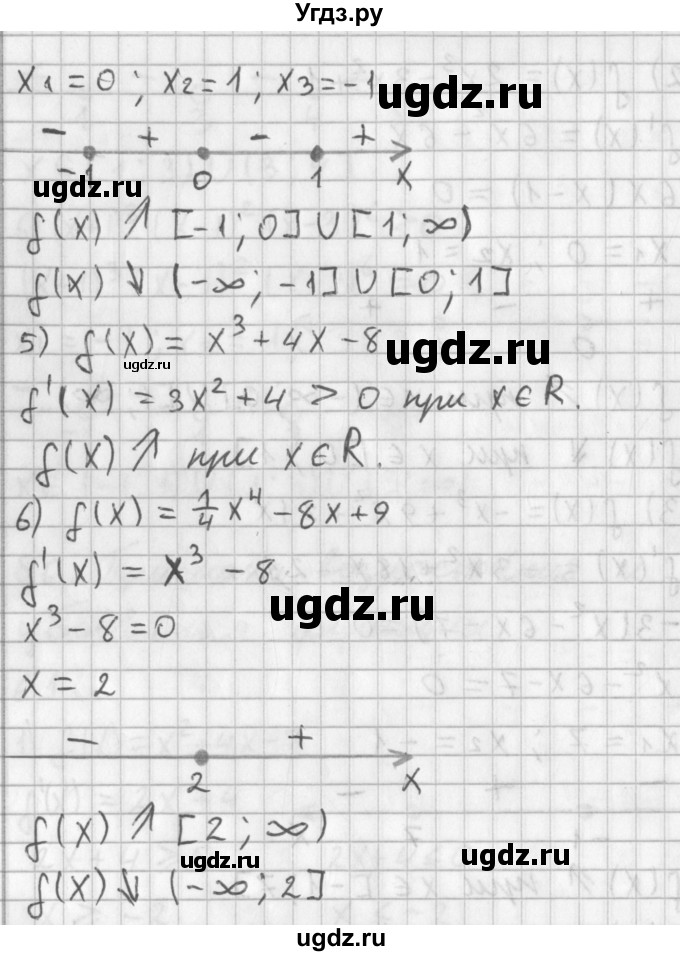 Угдз.ру
x₁ = 0 ; x₂ = 1 ; x₃ = -1
ugdz.ru
- + - +
-1 0 1 x
ugdz.ru
f(x) ↑ [-1; 0] U [1; ∞)
f(x) ↓ (-∞; -1] U [0; 1]
5) f(x) = x³ + 4x - 8
ugdz.ru
ugdz.ru
f'(x) = 3x² + 4 > 0 при x ∈ R.
f(x) ↑ при x ∈ R.
6) f(x) = 1/4 x⁴ - 8x + 9
f'(x) = x³ - 8
ugdz.ru
x³ - 8 = 0
x = 2
- +
2 x
f(x) ↑ [2; ∞)
ugdz.ru
ugdz.ru
f(x) ↓ (-∞; 2]
ugdz.ru